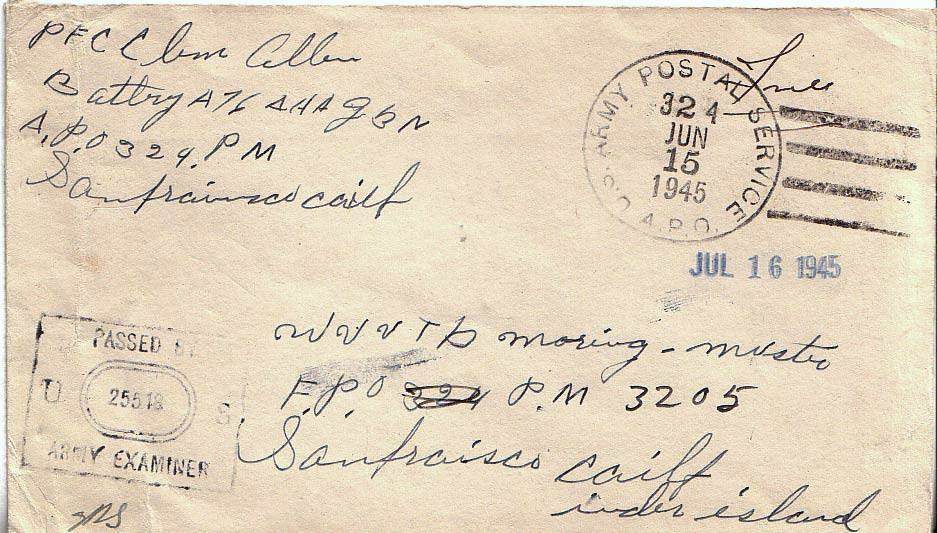 PFC Clem Allen
Battry A 76
A.P.O 324. P M
Sanfraincisco cailf
Free
U.S. ARMY POSTAL SERVICE
324
JUN
15
1945
A.P.O.
JUL 16 1945
PASSED BY
U. 25518 S.
ARMY EXAMINER
moring - mustro
F.P.O 324 P.M 3205
Sanfraisco cailf
inder island